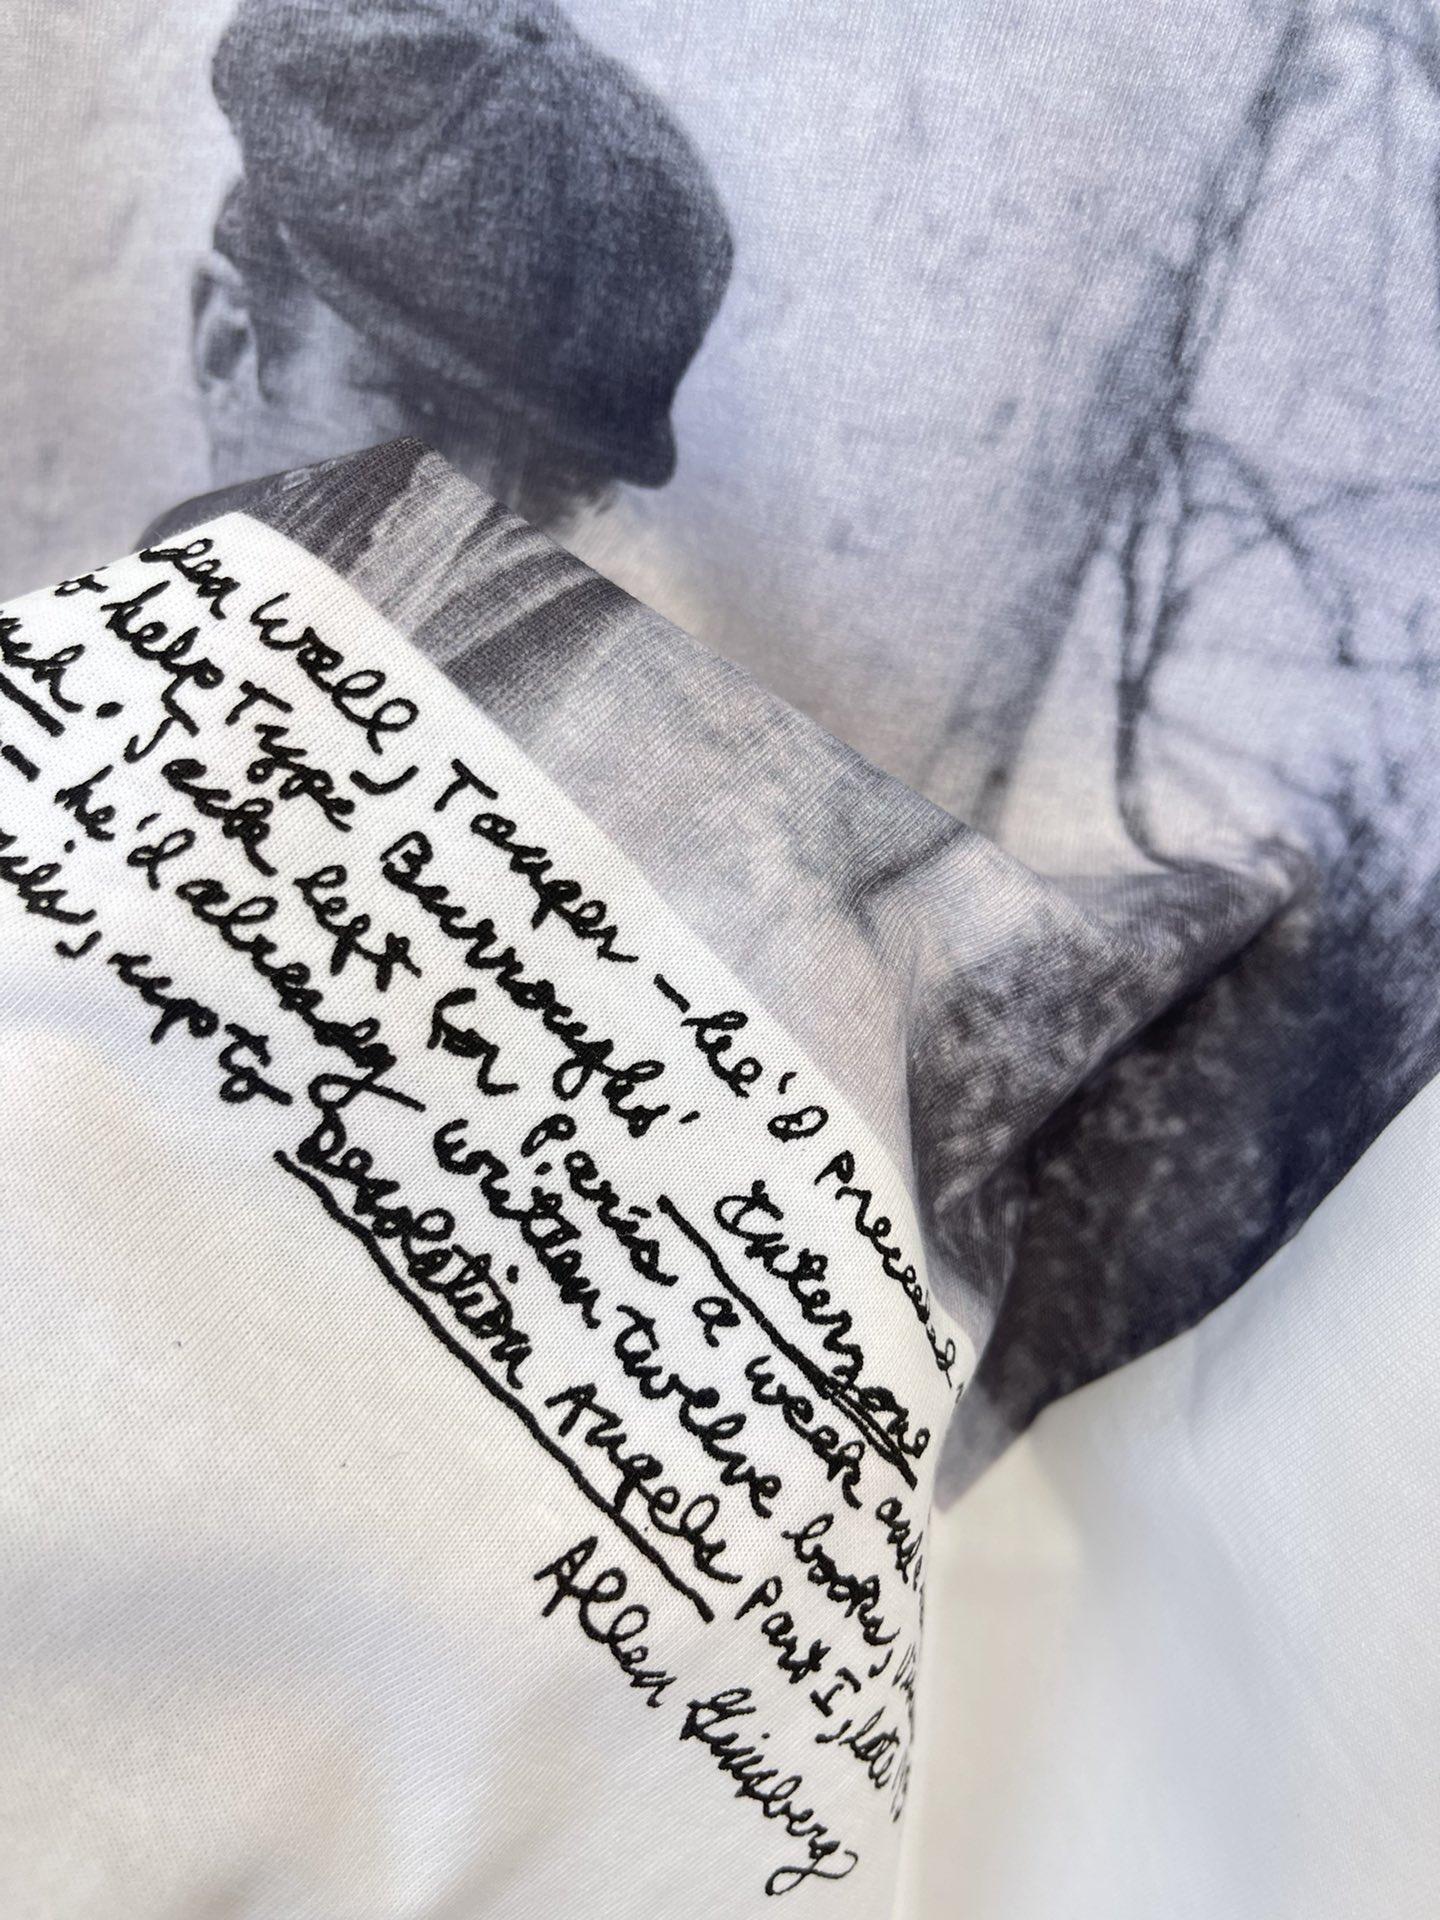 sea wall, Tanger – he'd preceeded
to help type Burroughs' Interzone
Jack left for Paris a week
he'd already written twelve books,
up to Desolation Angels part I, late
Allen Ginsberg